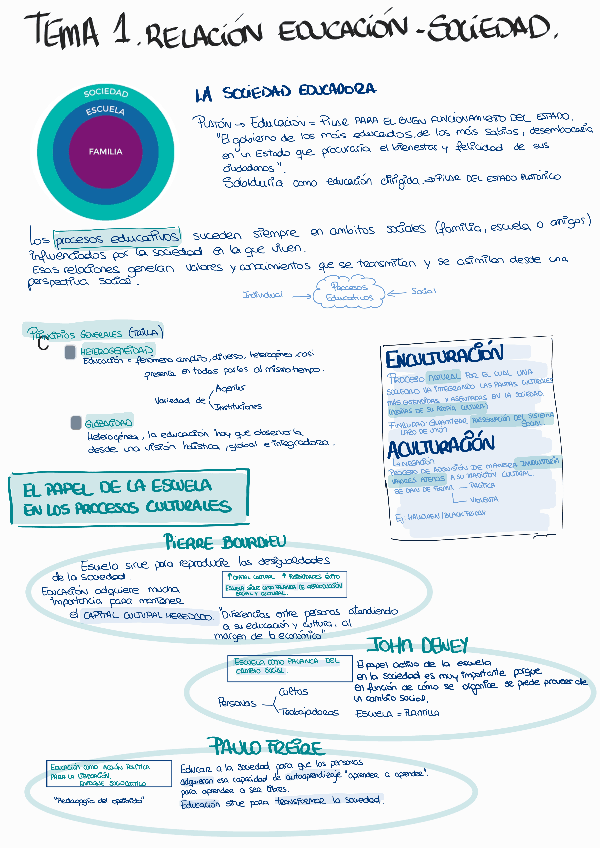 TEMA 1. RELACIÓN EDUCACIÓN-SOCIEDAD.
SOCIEDAD
ESCUELA
FAMILIA
LA SOCIEDAD EDUCADORA
PLATÓN → EDUCACION = PILAR PARA EL BUEN FUNCIONAMIENTO DEL ESTADO.
"El gobierno de los más educados, de los más sabios, desembocaría
en un Estado que procuraría el bienestar y felicidad de sus
ciudadanos".
Sabiduría como educación dirigida → PILAR DEL ESTADO PLATÓNICO
Los procesos educativos suceden siempre en ambitos sociales (familia, escuela, o amigos)
influenciados por la sociedad en la que viven.
Esas relaciones generan valores y conocimientos que se transmiten y se asimilan desde una
perspectiva social.
Individual → Procesos Educativos ← Social
PRINCIPIOS GENERALES
HETEROGENEIDAD
Educación = fenómeno amplio, diverso, heterogéneo, casi
presente en todas partes al mismo tiempo.
Variedad de
Agentes
Instituciones
GLOBALIDAD
Heterogénea, la educación hay que observarla
desde una visión holística, global e integradora.
ENCULTURACIÓN
PROCESO NATURAL POR EL CUAL UNA
SOCIEDAD VA INTEGRANDO LAS PAUTAS CULTURALES
MÁS EXTENDIDAS Y ASENTADAS EN LA SOCIEDAD.
FINALIDAD: GUARANTIZAR PRESERVACIÓN DEL SISTEMA
SOCIAL
ACULTURACIÓN
LA NEGACIÓN
PROCESO DE ADQUISICIÓN DE MANERA INVOLUNTARIA
VALORES AJENOS A SU TRADICIÓN CULTURAL.
SE DAN DE FORMA
PACÍFICA
VIOLENTA
Ej HALLOWEEN/BLACK FRIDAY
EL PAPEL DE LA ESCUELA
EN LOS PROCESOS CULTURALES
PIERRE BOURDIEU
Escuela sirve para reproducir las desigualdades
de la sociedad
EDUCACIÓN adquiere mucha
importancia para mantener
el CAPITAL CULTURAL HEREDADO
↑ CAPITAL CULTURAL ↑ POSIBILIDADES ÉXITO
ESCUELA SIRVE COMO PALANCA DE REPRODUCCIÓN
SOCIAL Y CULTURAL.
"Diferencias entre personas atendiendo
a su educación y cultura. al
margen de lo económico"
JOHN DEWEY
ESCUELA COMO PALANCA DEL
CAMBIO SOCIAL.
Personas
Cultas
Trabajadoras
El papel activo de la escuela
en la sociedad es muy importante porque
en función de cómo se organice se puede proveer de
un cambio social.
ESCUELA = PLANTILLA
PAULO FREIRE
EDUCACIÓN COMO ACCIÓN POLÍTICA
PARA LA LIBERACIÓN.
ENFOQUE SOCIOCRÍTICO
"Pedagogía del oprimido"
Educar a la sociedad para que las personas
adquieran esa capacidad de autoaprendizaje "aprender a aprender".
para aprender a ser libres.
Educación sirve para TRANSFORMAR la sociedad.